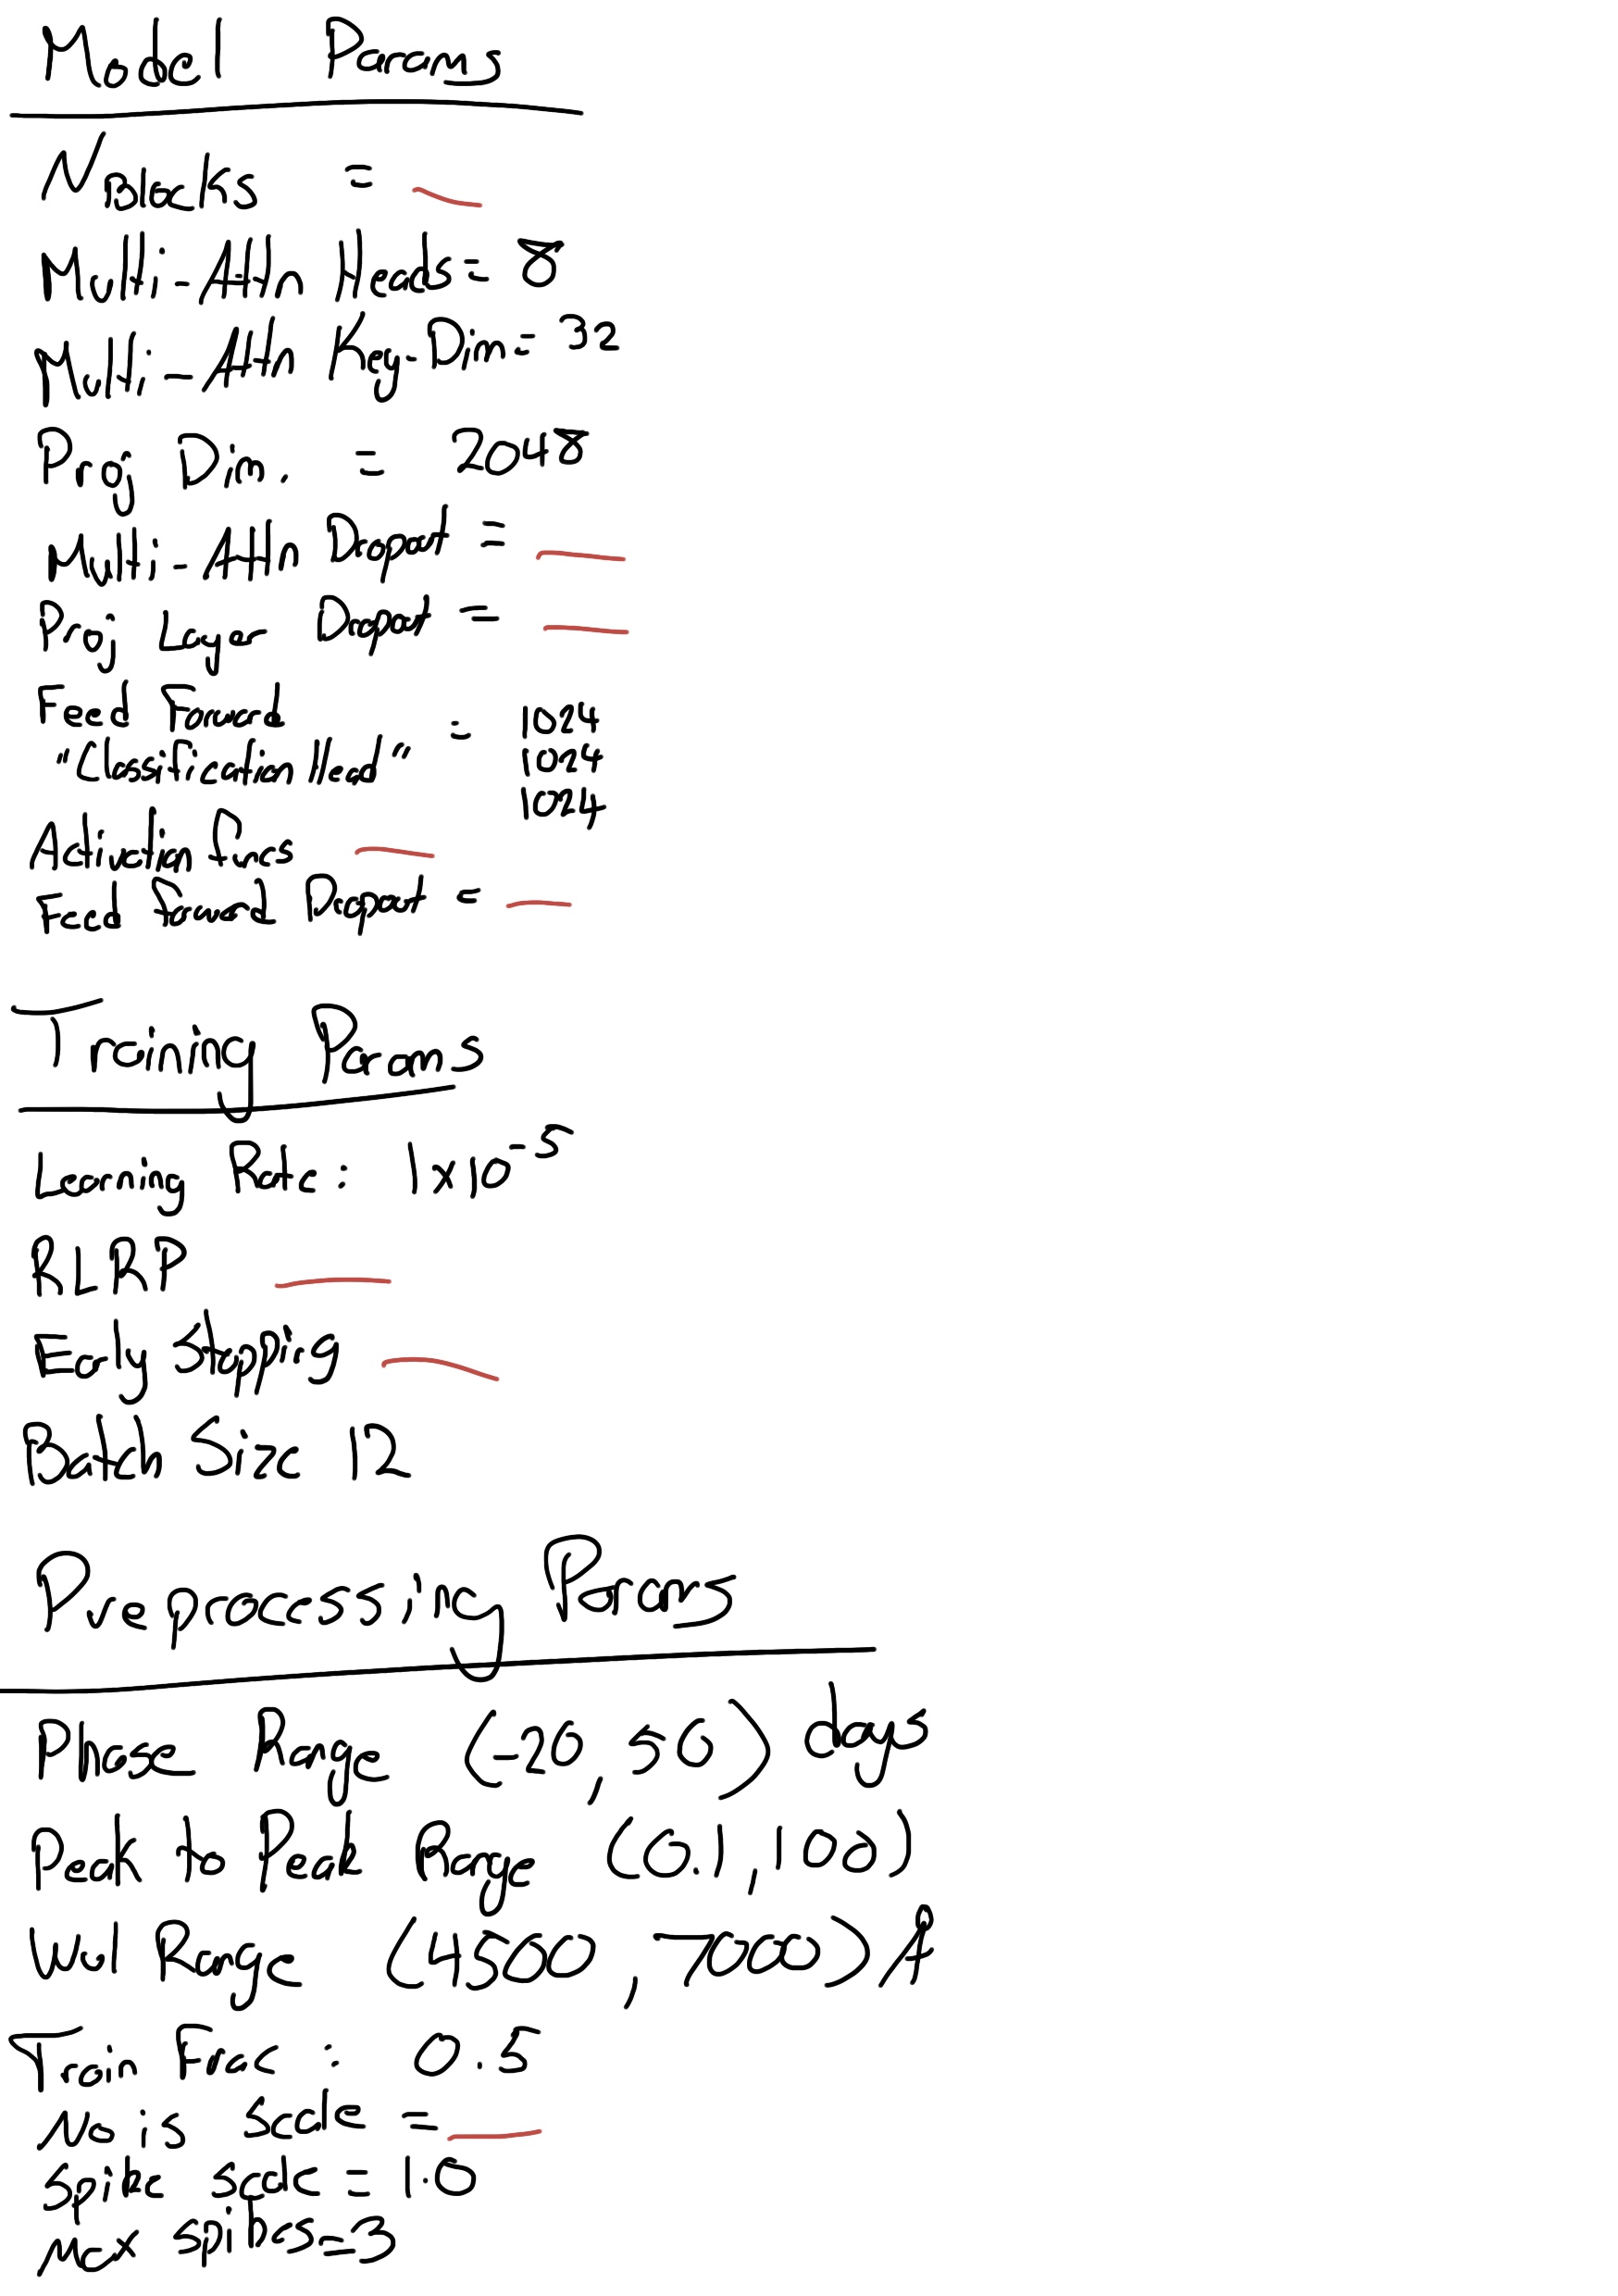 Model Params
N Blocks =
Multi-Attn Heads = 8
Multi-Attn Key-Dim = 32
Proj Dim. = 2048
Multi-Attn Dropout =
Proj Layer Dropout =
Feed Forward
"Classification Head" = 1024
1024
1024
Activation Funcs
Feed Forward Dropout =
Training Params
Learning Rate: 1x10⁻⁵
RLRP
Early Stopping
Batch Size 12
Preprocessing Params
Phase Range (-20, 50) days
Peak to Peak Range (0.1, 100)
Wvl Range (4500, 7000) Å
Train Frac: 0.5
Nois Scale =
Spike Scale = 1.0
Max Spikes = 3